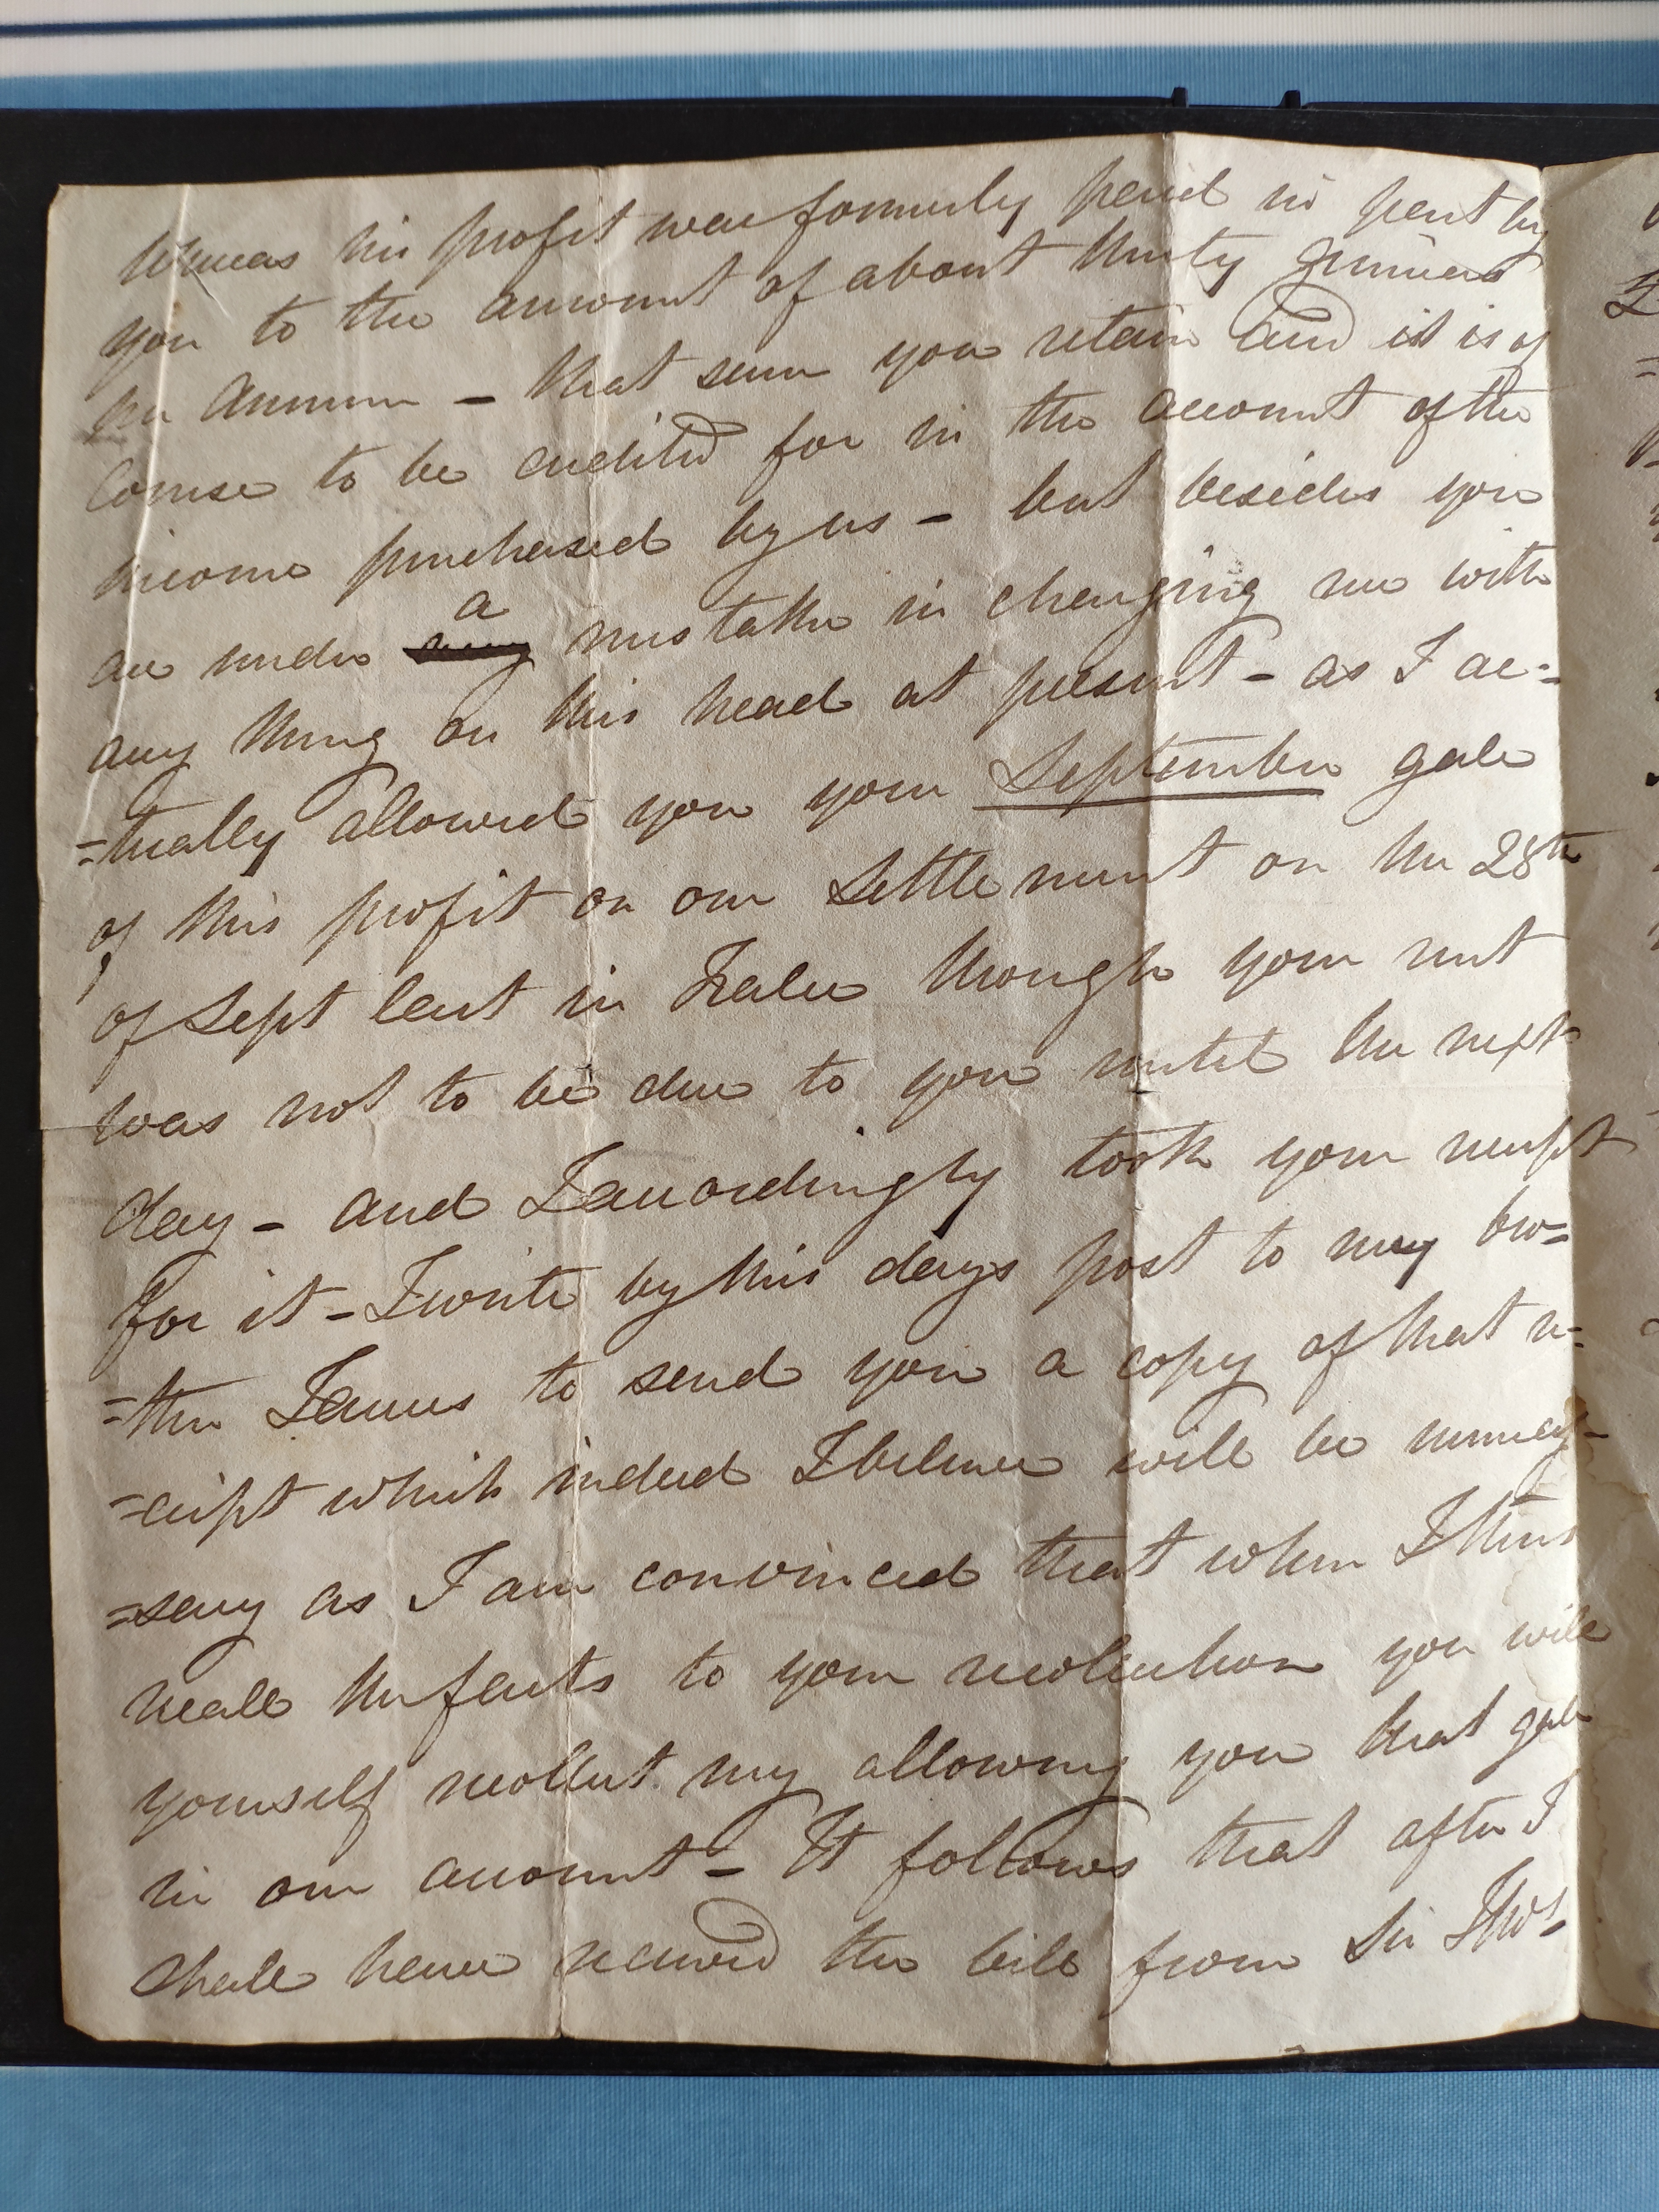 Whereas his profit was formerly paid in part by
you to the amount of about thirty guineas
per Annum - that sum you retain and it is of
Course to be credited for in the account of the
income purchased by us - but besides you
are under a mistake in charging me with
any thing on this head at present - as I ac=
=tually allowed you your September gale
of this profit on our Settlement on the 28th
of Sept last in Tralee though your rent
was not to be due to you until the next
day - and I accordingly took your receipt
for it - I write by this days post to my bro=
=ther James to send you a copy of that re=
=ceipt which indeed I believe will be unneces=
=sary as I am convinced that when I thus
recall the facts to your recollection you will
yourself recollect my allowing you that gale
in our account - It follows that after I
shall have received the bill from Sir Thos